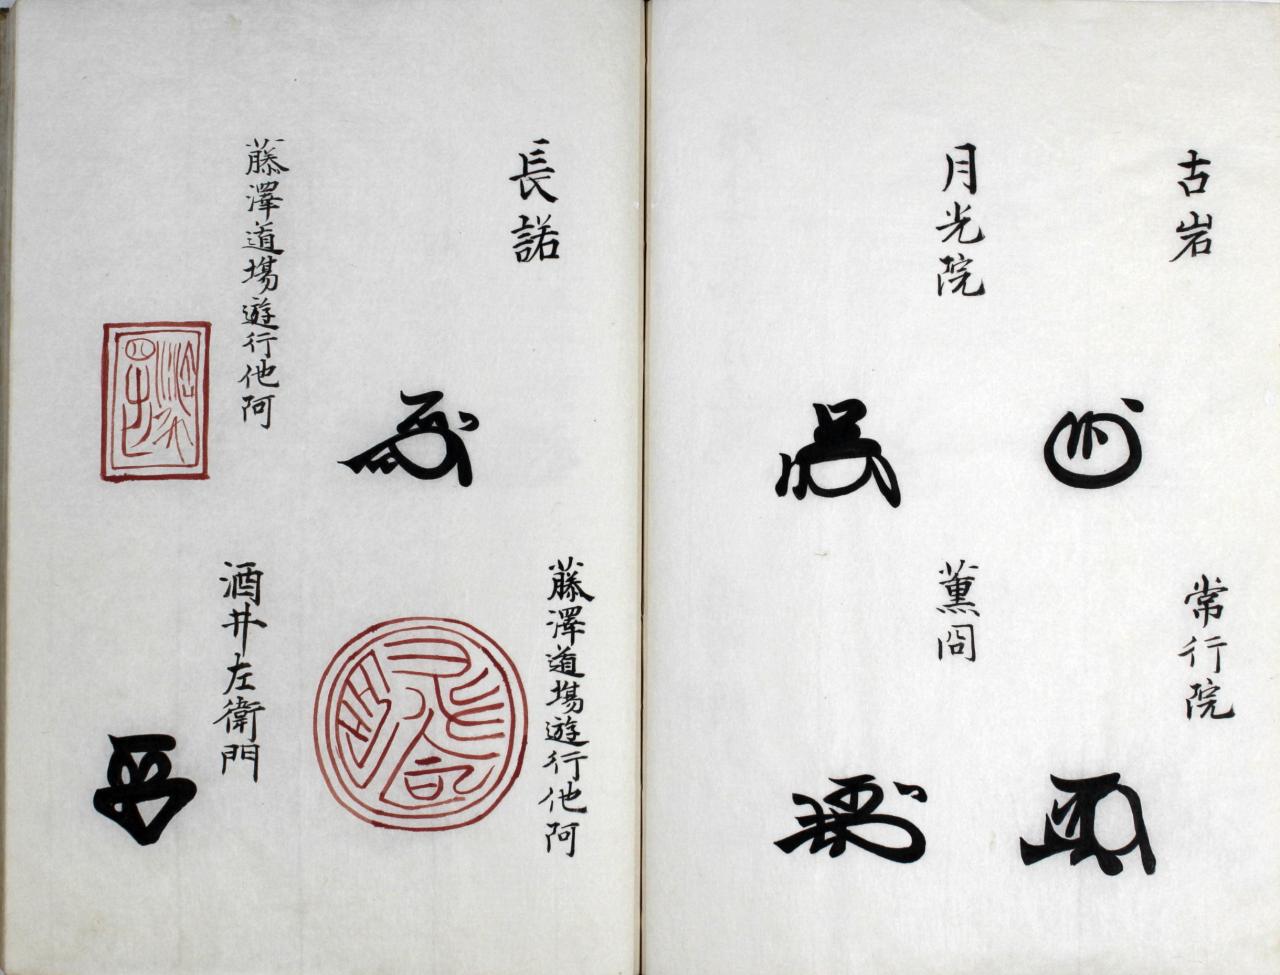 古岩
常行院
月光院
薫冏
長諾
藤澤道場遊行他阿
藤澤道場遊行他阿
酒井左衛門